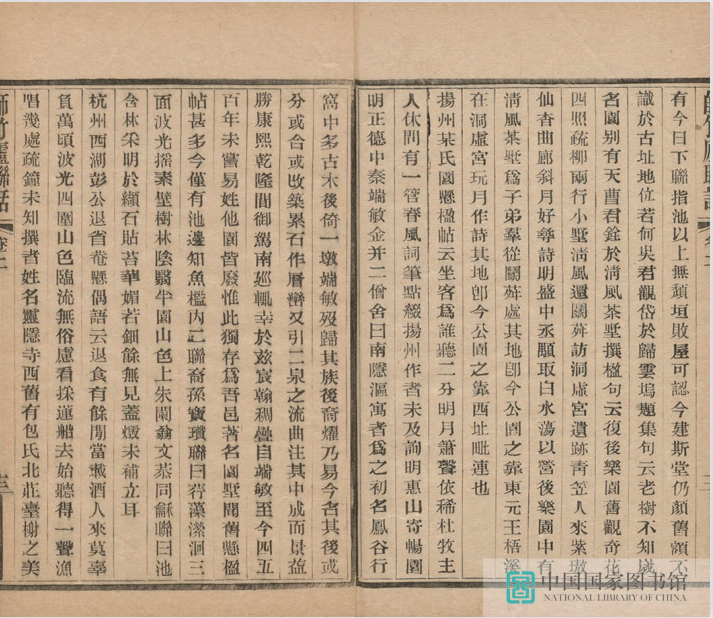 有今日下聯指池以上無頽垣敗屋可認今建斯堂仍顏舊額不
識於古址地位若何吳君觀岱於歸雲塢題集句云老樹不知歲
名園別有天曹君銓於清風茶墅撰楹句云復後樂園舊觀奇花
四照疏柳兩行小墅清風還鬭舜訪洞虛宮遺跡青笠人來紫璈
仙杳曲廊斜月好尋詩明盛中丞顒取白水蕩以營後樂園中有
清風茶墅爲子弟羣從鬭舜處其地卽今公園之靠東元王梧溪
在洞虛宮玩月作詩其地卽今公園之靠西址毗連也
揚州某氏園懸楹帖云坐客爲誰聽二分明月簫聲依稀杜牧主
人休問有一管春風詞筆點綴揚州作者未及詢明惠山寄暢園
明正德中秦端敏金并二僧舍曰南隱漚寓者爲之初名鳳谷行
窩中多古木後倚一墩端敏歿歸其族後裔燿乃易今名其後或
分或合或改築累石作層巒又引二泉之流曲注其中成而景益
勝康熙乾隆間御駕南廵輒幸於玆宸翰稠疊自端敏至今四五
百年未嘗易姓他園皆廢惟此獨存爲吾邑著名園墅聞舊懸楹
帖甚多今僅有池邊知魚檻內二聯裔孫寶瓚聯曰荇藻瀠洄三
面波光摇素壁樹林陰翳半園山色上朱闌翁文恭同龢聯曰池
含林采明於纈石貼苔華媚若鈿餘無見蓋燬未補立耳
杭州西湖彭公退省菴懸偶語云退食有餘閒當檻酒人來莫辜
負萬頃波光四圍山色臨流無俗慮看採蓮船去始聽得一聲漁
唱幾處疏鐘未知撰者姓名靈隱寺西舊有包氏北莊臺榭之美
師竹廬聯話
卷二
三
中国国家图书馆
NATIONAL LIBRARY OF CHINA